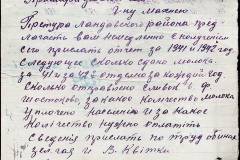 г-ну Махно
Претура Ландавского района пред
лагает вам немедленно с получением
сего прислать отчет за 1941 и 1942 год
Следующее сколько сдано молока.
за 41 и за 42 отдельно за каждый год
сколько отправлено сливок в ф.
Шостаково, за какое количество молока
уплочено населению и за какое
количество нужно уплатить
Сведения прислать
В. Квітко